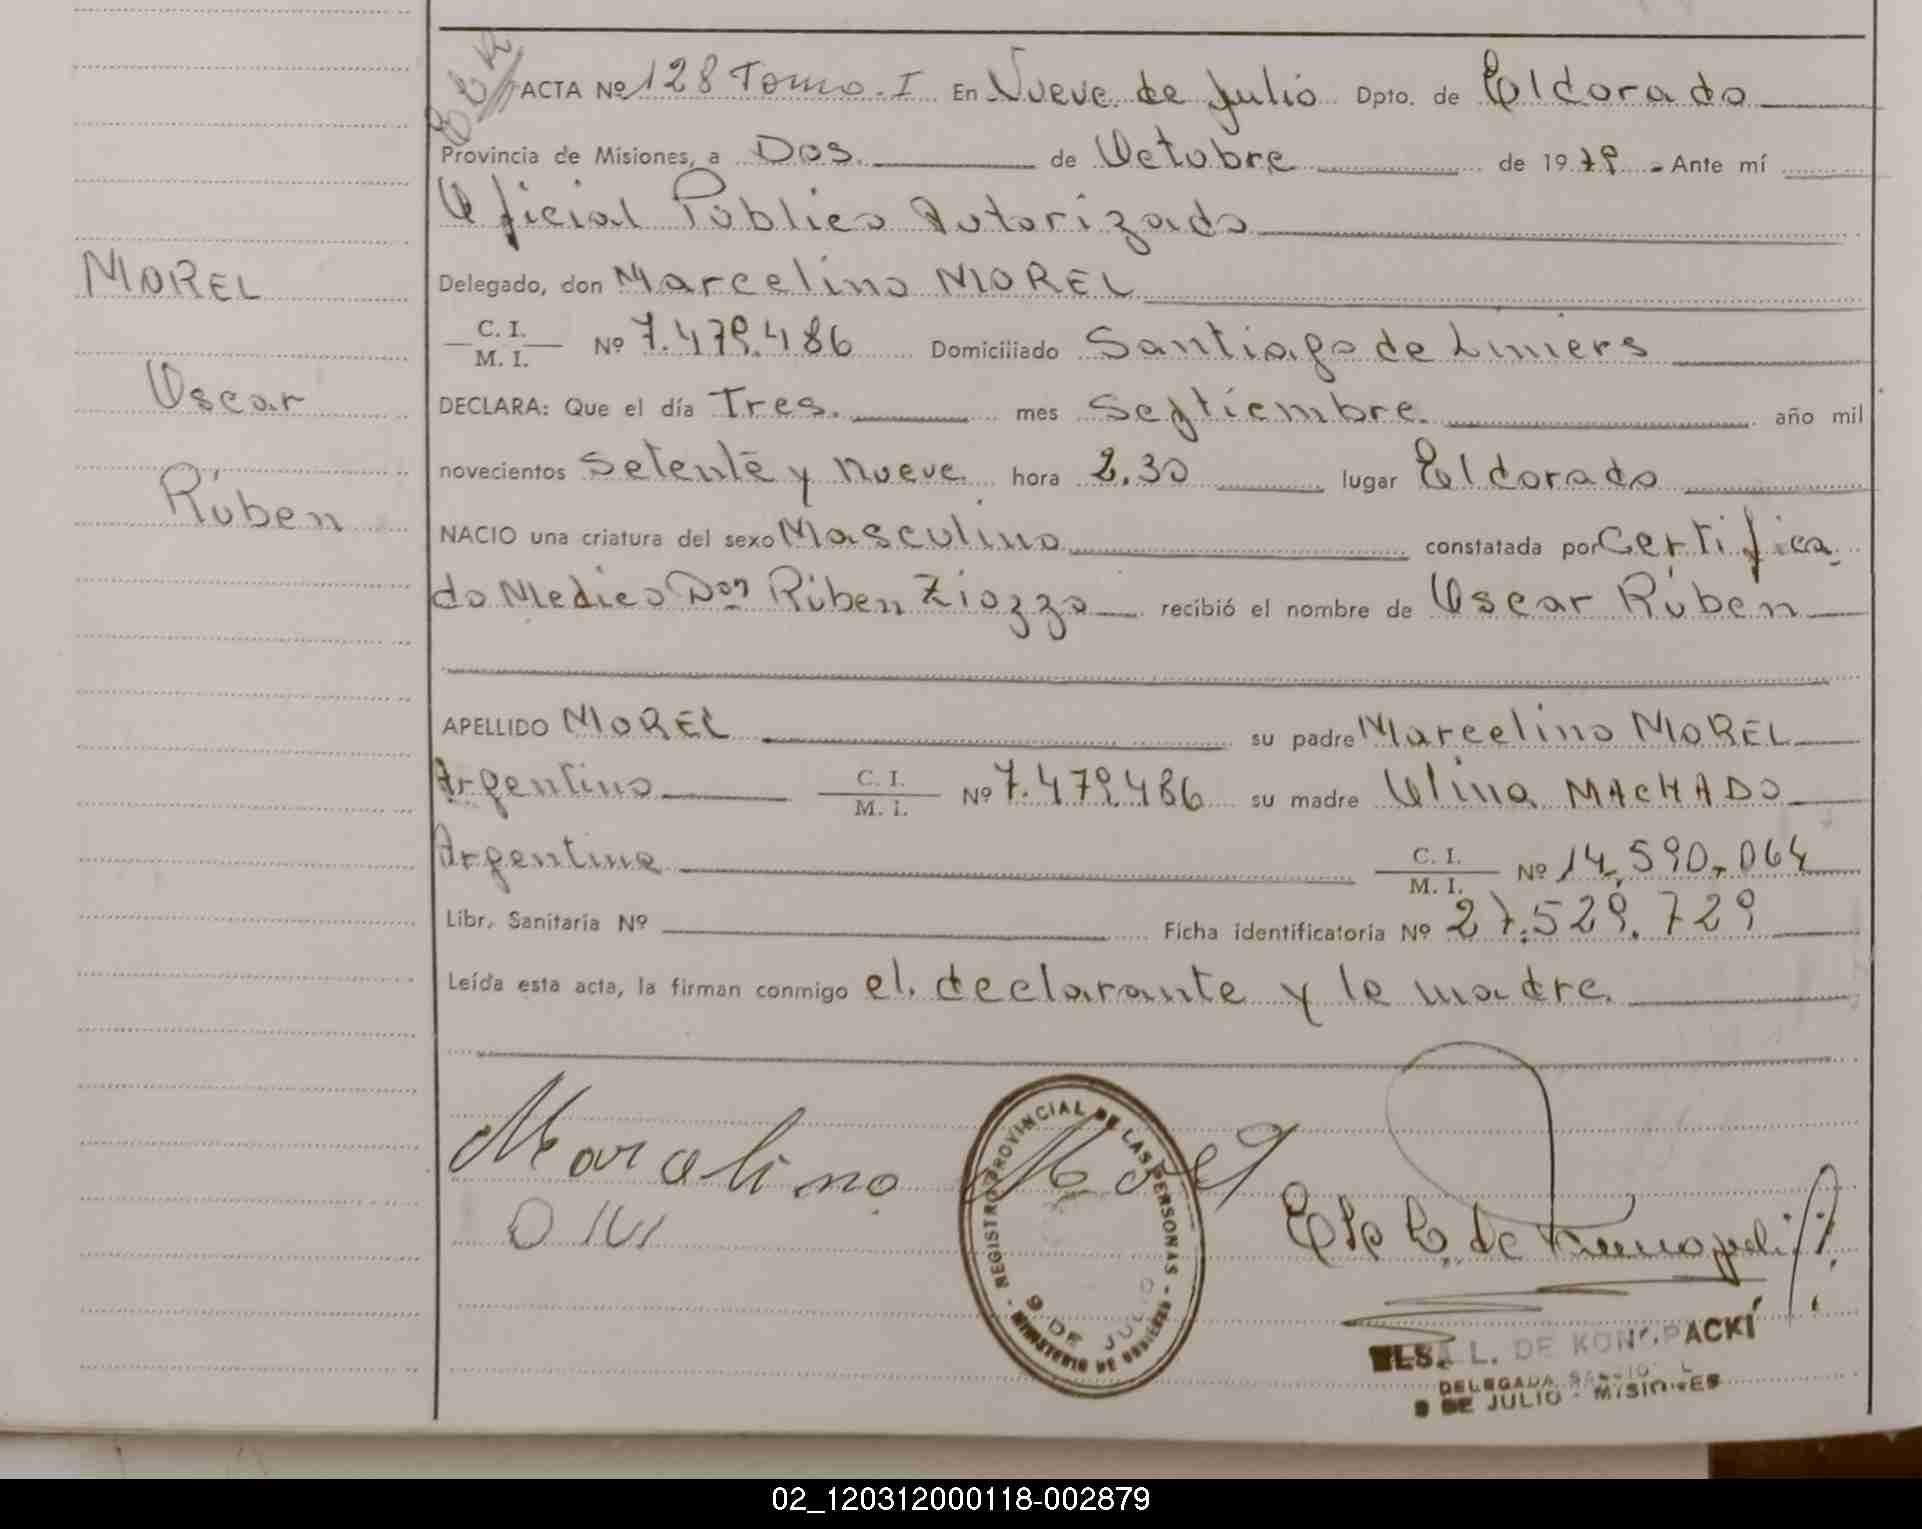 MOREL
Oscar
Rúben
ACTA Nº 128 Tomo. I En Nueve de Julio Dpto. de Eldorado
Provincia de Misiones, a Dos. de Octubre de 1979.- Ante mí
Oficial Público Autorizado
Delegado, don Marcelino MOREL
C. I.
M. I. Nº 7.479.486 Domiciliado Santiago de Liniers
DECLARA: Que el día Tres. mes Septiembre. año mil
novecientos Setenta y nueve. hora 2.30 lugar Eldorado
NACIO una criatura del sexo Masculino constatada por Certifica
do Medico Don Rúben Ziozzo recibió el nombre de Oscar Rúben
APELLIDO MOREL su padre Marcelino MOREL
Argentino C. I.
M. I. Nº 7.479.486 su madre Olina MACHADO
Argentina C. I.
M. I. Nº 14.590.064
Libr. Sanitaria Nº Ficha identificatoria Nº 27.529.729
Leída esta acta, la firman conmigo el. declarante y la madre.
Marcelino Morel
REGISTRO PROVINCIAL DE LAS PERSONAS - MINISTERIO DE GOBIERNO -
9 DE JULIO
ELSA L. DE KONOPACKI
DELEGADA
9 DE JULIO - MISIONES
02_120312000118-002879